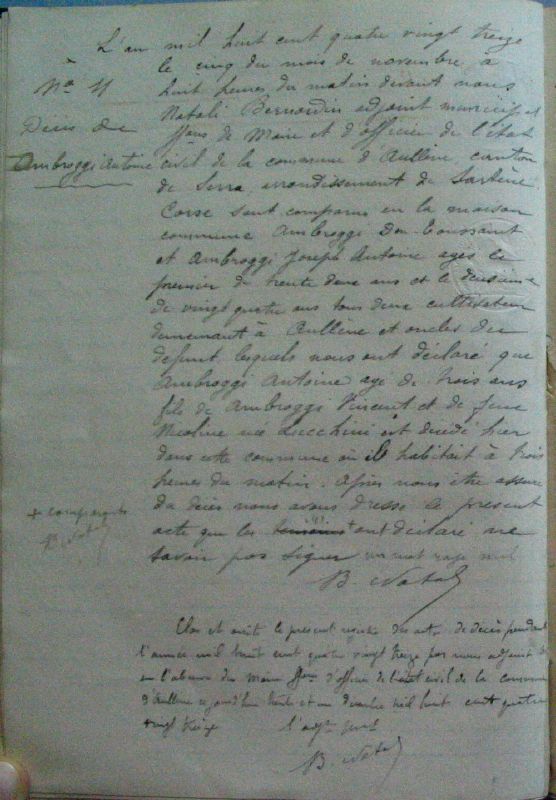 L'an mil huit cent quatre vingt treize
le cinq du mois de novembre à
huit heures du matin devant nous
Natali Bernardin adjoint municipal
ffons de Maire et d'officier de l'état
civil de la commune d'Aullène, canton
de Serra arrondissement de Sartène
Corse sont comparus en la maison
commune Ambroggi Don Toussaint
et Ambroggi Joseph Antoine agés le
premier de trente deux ans et le deuxième
de vingt quatre ans tous deux cultivateurs
demeurant à Aullène et oncles du
defunt, lesquels nous ont déclaré que
Ambroggi Antoine agé de trois ans
fils de Ambroggi Vincent et de feue
Nicoline née Lucchini est décédé hier
dans cette commune où il habitait à trois
heures du matin. Après nous être assuré
du décès nous avons dressé le present
acte que les temoins + ont déclaré ne
savoir pas signer un mot rayé nul
B. Natali
No 11
Décès de
Ambroggi Antoine
+ comparants
B. Natali
Clos et arrêté le present registre des actes de décès pendant
l'année mil huit cent quatre vingt treize par nous adjoint
en l'absence du Maire ffons d'officier de l'état civil de la commune
d'Aullène aujourd'hui trente et un décembre mil huit cent quatre
vingt treize l'adjt
B. Natali